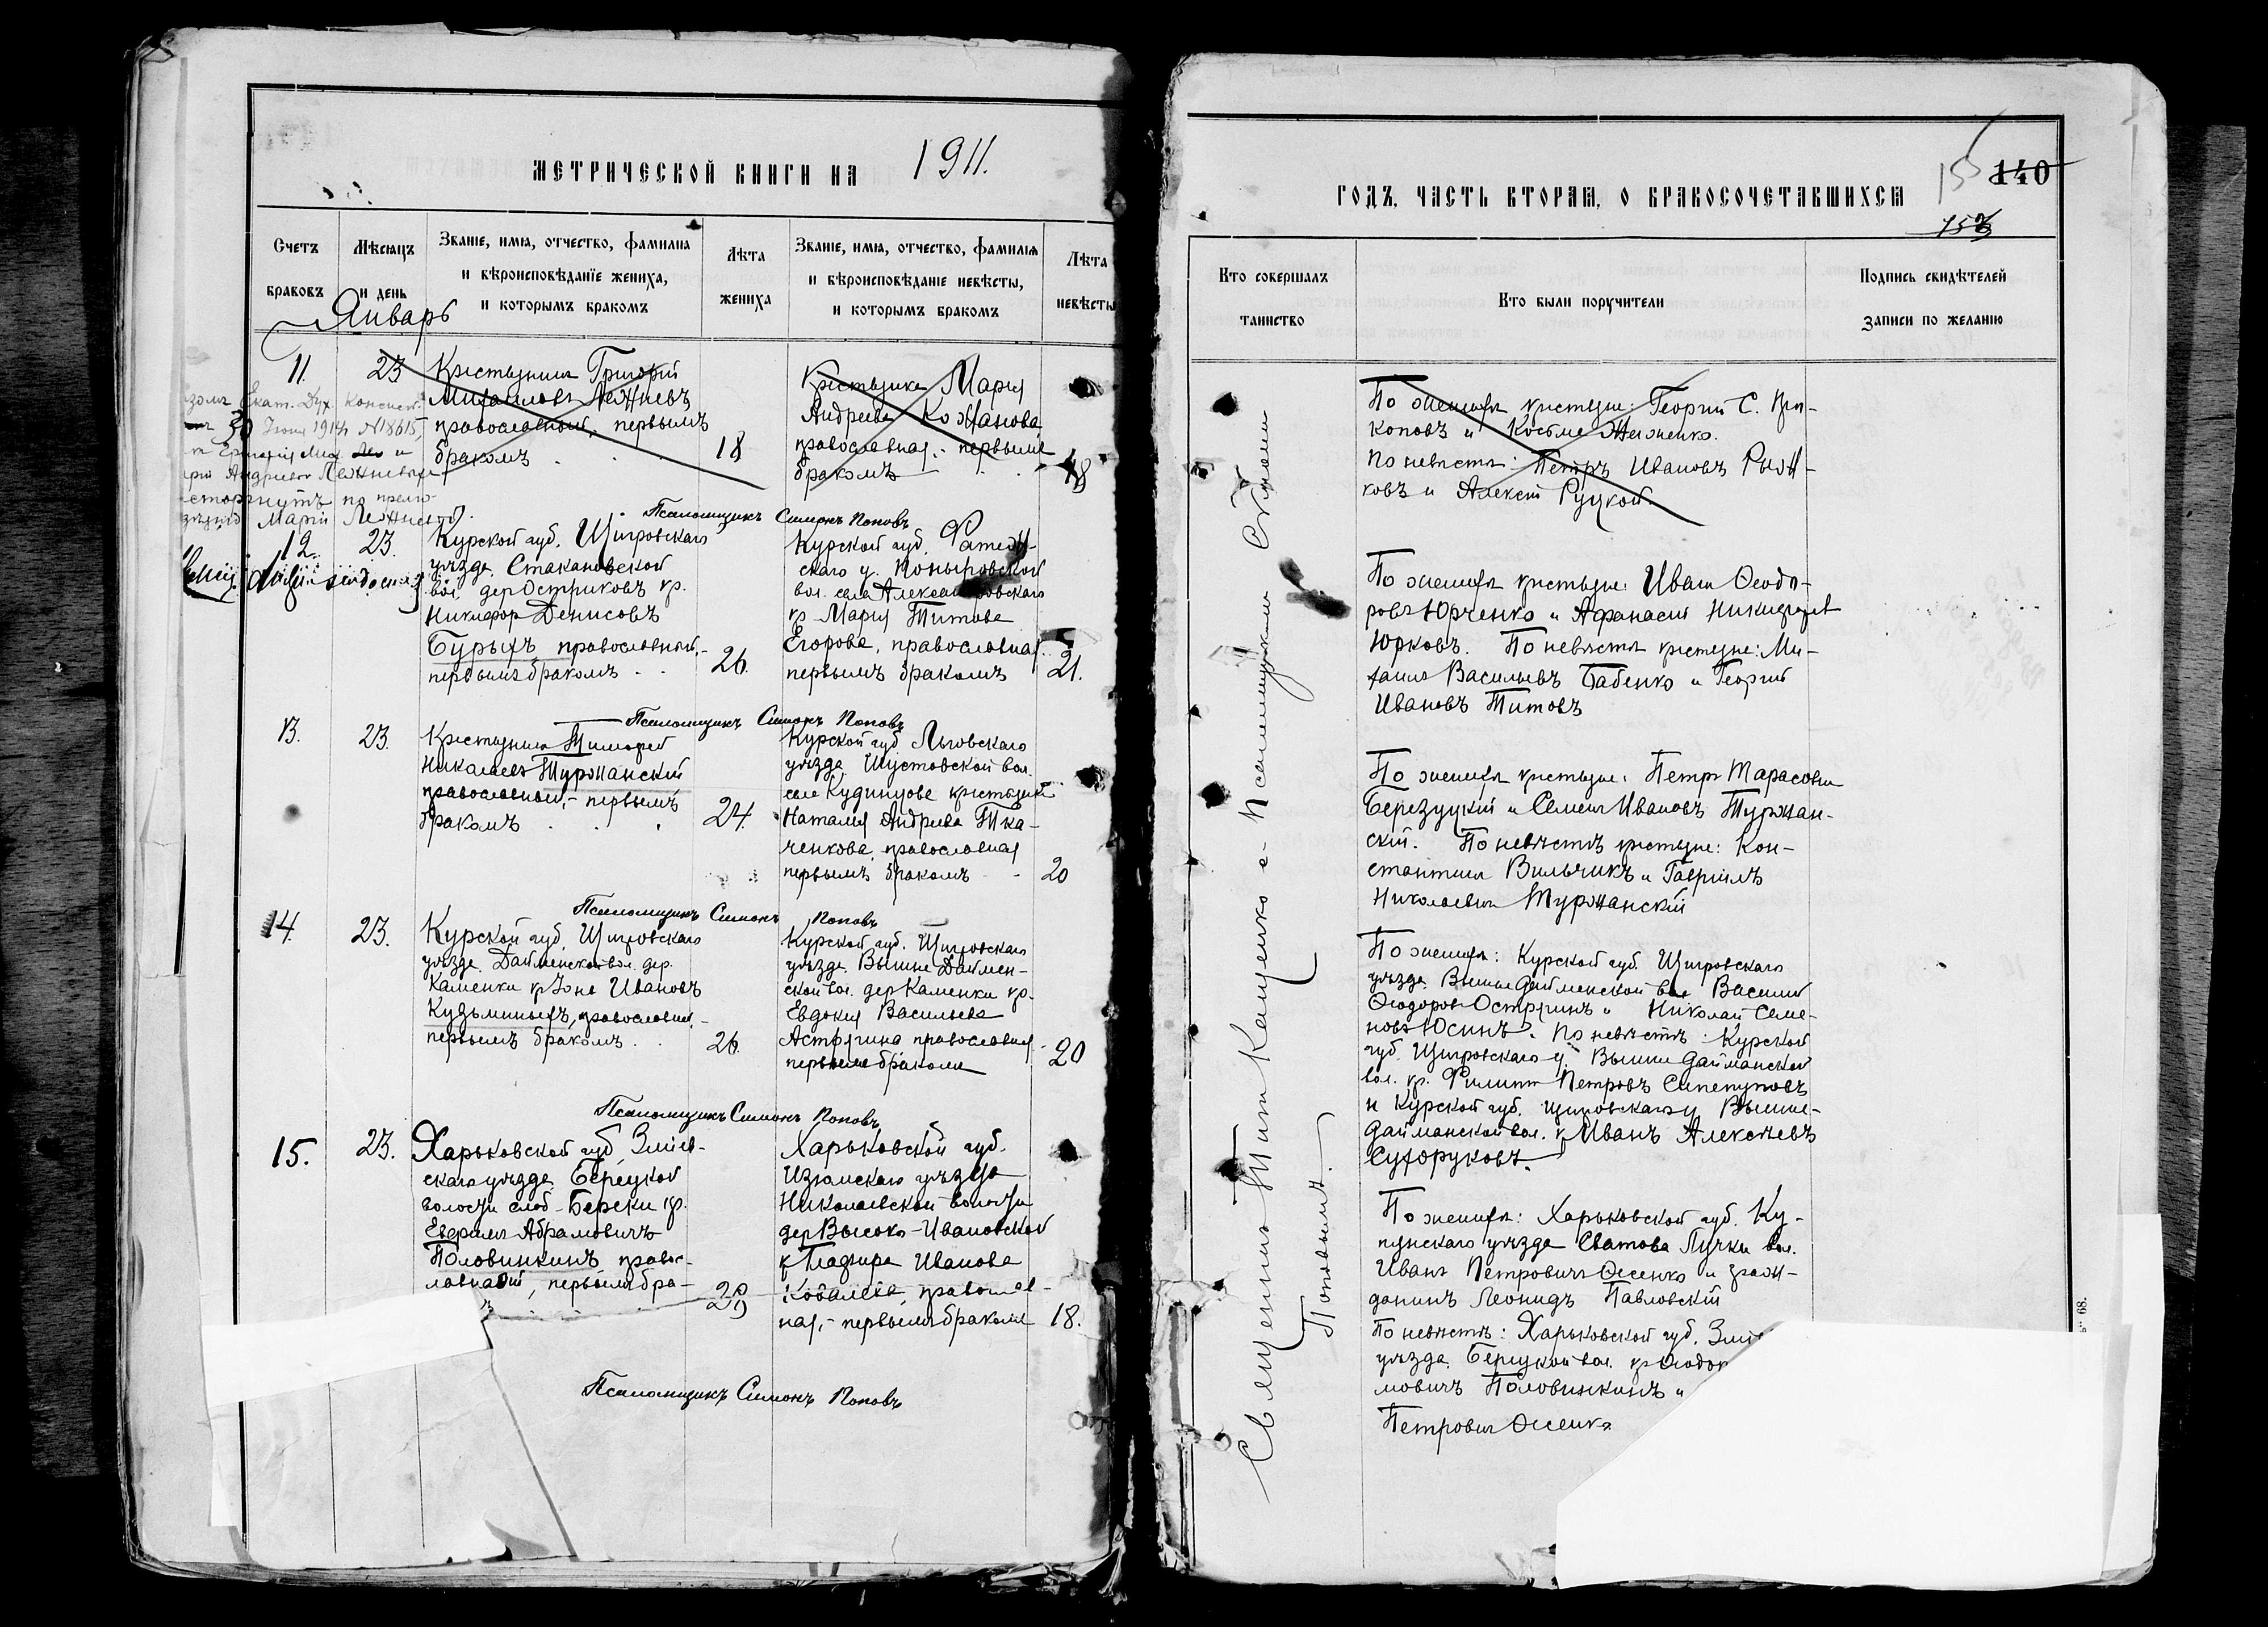 МЕТРИЧЕСКОЙ КНИГИ НА 1911.
Счетъ браковъ
Мѣсяцъ и день
Званіе, имя, отчество, фамилія
и вѣроисповѣданіе жениха,
и которымъ бракомъ
Лѣта
жениха
Званіе, имя, отчество, фамилія
и вѣроисповѣданіе невѣсты,
и которымъ бракомъ
Лѣта
невѣсты
Январь
11.
23
Крестьянинъ Григорій
Михайловъ Лежневъ
православный, первымъ
бракомъ
18
Крестьянка Марія
Андреева Кожанова
православная, - первымъ
бракомъ
18
Екат. Дух. Консист.
30 Іюня 1914 г. №18615,
Андреевой Лежневыхъ
расторгнутъ по прелю-
Маріи Лежневой.
Псаломщикъ Симонъ Поповъ
12.
23.
Курской губ. Щигровскаго
уѣзда Стакановской
вол. дер Остриковъ кр.
Никифоръ Денисовъ
Бурыхъ, православный, -
первымъ бракомъ
26.
Курской губ. Фатеж-
скаго у. Поныровской
вол. села Александровскаго
кр Марія Титова
Егорова, православная
первымъ бракомъ
21.
Псаломщикъ Симонъ Поповъ
13.
23.
Крестьянинъ Тимофей
Николаевъ Туржанскій
православный, - первымъ
бракомъ
24.
Курской губ. Льговскаго
уѣзда Шустовской вол.
села Кудинцова крестьянка
Наталія Андреева Тка-
ченкова, православная
первымъ бракомъ
20
Псаломщикъ Симонъ Поповъ
14.
23.
Курской губ. Щигровскаго
уѣзда Дайменской вол. дер.
Каменки кр Іона Ивановъ
Кузьминыхъ, православный, -
первымъ бракомъ
26.
Курской губ. Щигровскаго
уѣзда Вышне Даймен-
ской вол. дер Каменки кр.
Евдокія Васильева
Астругина православная
первымъ бракомъ
20
Псаломщикъ Симонъ Поповъ
15.
23.
Харьковской губ, Зміев-
скаго уѣзда Берецкой
волости слоб - Береки кр.
Ефремъ Абрамовичъ
Половинкинъ, правос-
лавный, первымъ бра-
29
Харьковской губ.
Изюмскаго уѣзда
Николаевской волости
дер Высоко-Ивановской
кр Глафира Иванова
Ковалева, православ-
ная, - первымъ бракомъ
18.
Псаломщикъ Симонъ Поповъ
ГОДЪ, ЧАСТЬ ВТОРАЯ, О БРАКОСОЧЕТАВШИХСЯ
140
15
Кто совершалъ
таинство
Кто были поручители
Подпись свидѣтелей
записи по желанію
Священникъ Титъ Кащенко с Псаломщикомъ Симономъ
Поповымъ.
По женихѣ крестьяне: Георгій С. Про-
коповъ и Косьма Лиженко.
По невѣстѣ: Петръ Ивановъ Рыж-
ковъ и Алексѣй Руцкой.
По женихѣ крестьяне: Иванъ Ѳеодо-
ровъ Юрченко и Афанасій Никифоровъ
Юрковъ. По невѣстѣ крестьяне: Ми-
хаилъ Васильевъ Бабенко и Георгій
Ивановъ Титовъ
По женихѣ крестьяне: Петръ Тарасовичъ
Березуцкій и Семенъ Ивановъ Туржан-
скій. По невѣстѣ крестьяне: Кон-
стантинъ Вильчикъ и Гавріилъ
Николаевичъ Туржанскій
По женихѣ: Курской губ. Щигровскаго
уѣзда Вышне Дайменской вол Василій
Ѳеодоровъ Остругинъ и Николай Семе-
новъ Юсинъ. По невѣстѣ: Курской
губ. Щигровскаго у. Вышне Дайманской
вол. кр. Филиппъ Петровъ
и Курской губ. Щигровскаго у Вышне-
Дайманской вол. кр Иванъ Алексѣевъ
Сухоруковъ.
По женихѣ: Харьковской губ. Ку-
пянскаго уѣзда Сватова Лучки вол.
Иванъ Петровичъ Осенко и граж-
данинъ Леонидъ Павловскій
По невѣстѣ: Харьковской губ. Змі
уѣзда Берецкой вол. кр Ѳеодор
мовичъ Половинкинъ и
Петровичъ Осенко
68.